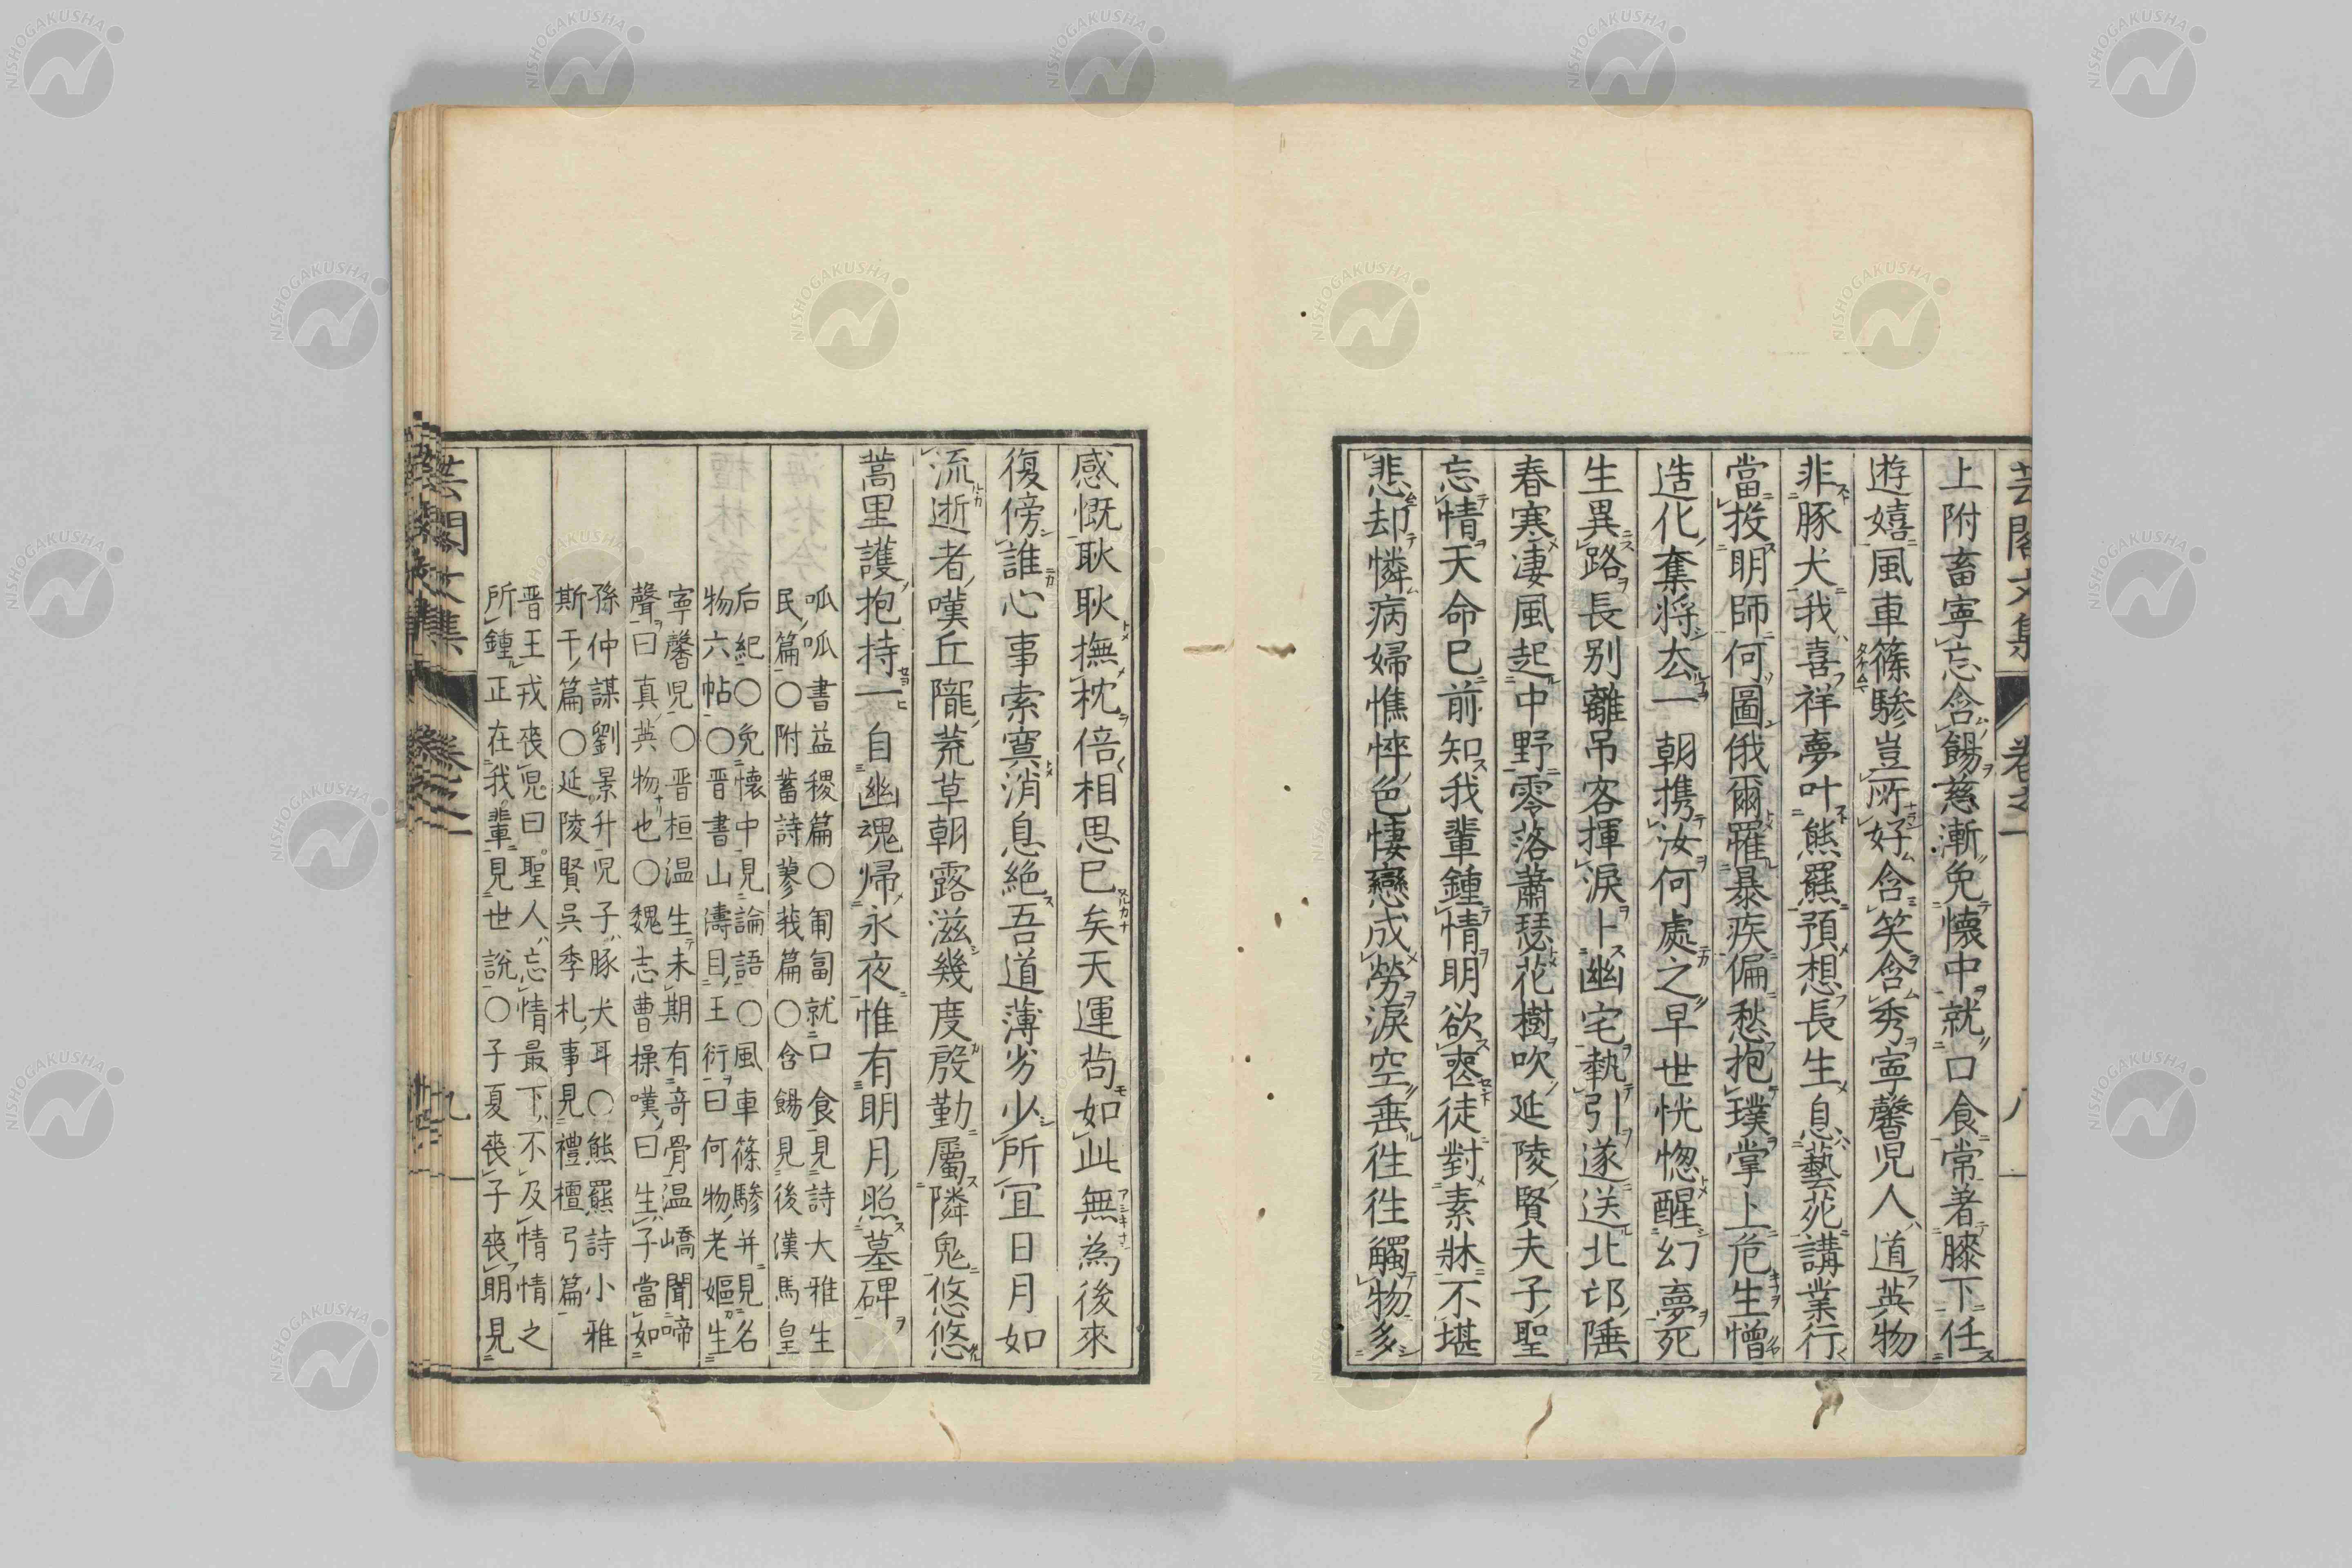 芸閣文集 卷之一 八
上附畜寧忘含餳慈漸免懷中就口食常著膝下任
遊嬉風車篠驂豈所好含笑含秀寧馨児人道英物
非豚犬我喜祥夢叶熊羆預想長生息藝苑講業行
當投明師何圖俄爾罹暴疾偏愁抱璞掌上危生憎
造化奪将厺一朝携汝何處之早世恍惚醒幻夢死
生異路長别離吊客揮淚卜幽宅執引遂送北邙陲
春寒凄風起中野零落蕭瑟花樹吹延陵賢夫子聖
忘情天命已前知我輩鍾情明欲喪徒對素牀不堪
悲却憐病婦憔悴色悽戀成勞淚空垂徃徃觸物多
感慨耿耿撫枕倍相思已矣天運苟如此無為後來
復傍誰心事索寞消息絶吾道薄劣少所冝日月如
流逝者嘆丘隴荒草朝露滋幾度慇勤屬隣鬼悠悠
蒿里護抱持一自幽魂帰永夜惟有明月照墓碑
呱呱書益稷篇〇匍匐就口食見詩大雅生
民篇〇附蓄詩蓼莪篇〇含餳見後漢馬皇
后紀〇免懷中見論語〇風車篠驂并見名
物六帖〇晋書山濤目王衍曰何物老嫗生
寧馨児〇晋桓温生未期有奇骨温嶠聞啼
聲曰真英物也〇魏志曹操嘆曰生子當如
孫仲謀劉景升児子豚犬耳〇熊羆詩小雅
斯干篇〇延陵賢呉季札事見禮檀弓篇
晋王戎喪児曰聖人忘情最下不及情情之
所鍾正在我輩見世説〇子夏喪子喪明見
芸閣文集 卷之一 九